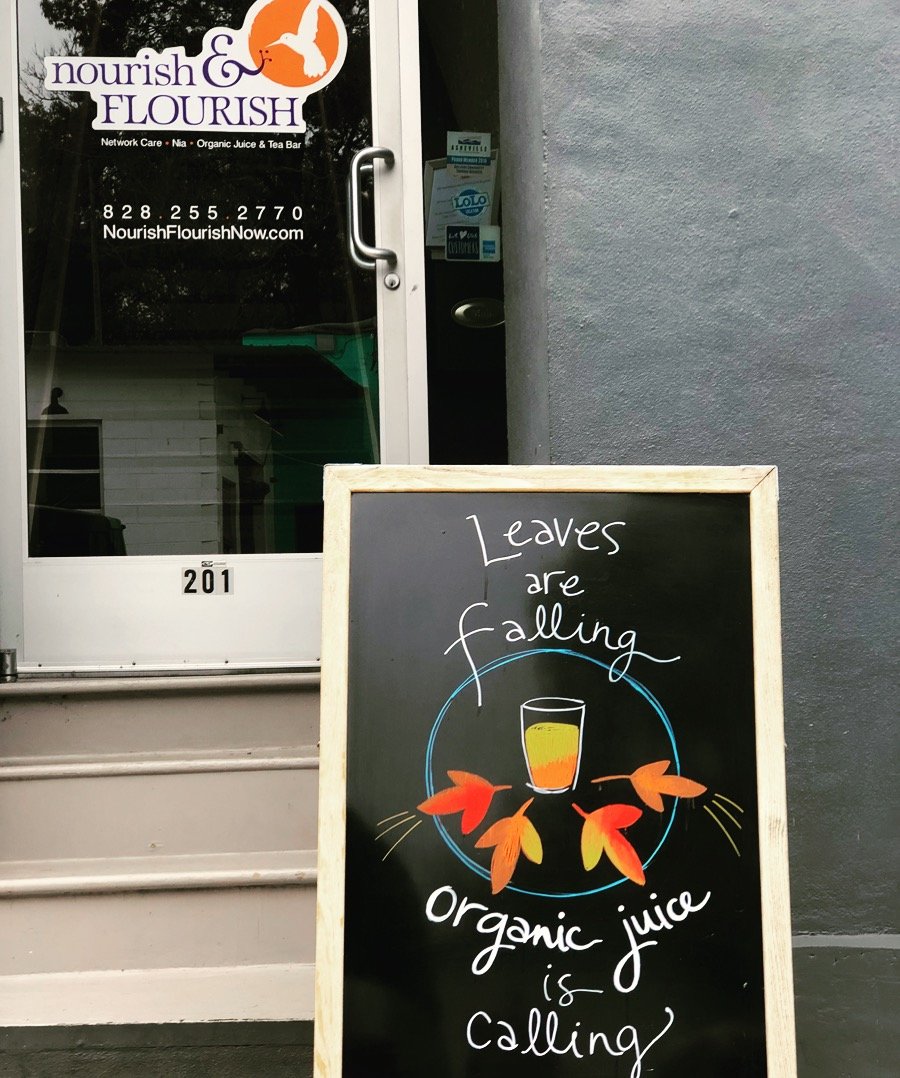 nourish &
FLOURISH
Network Care • Nia • Organic Juice & Tea Bar
828.255.2770
NourishFlourishNow.com
ASHEVILLE
LOLO
CUSTOMERS
201
Leaves
are
falling
organic juice
is
calling